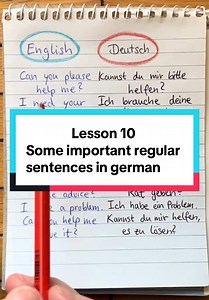 English Deutsch
Can you please Kannst du mir bitte
help me? helfen?
I need your Ich brauche deine
Lesson 10
Some important regular
sentences in german
advice? Rat geben?
I a problem. Ich habe ein Problem.
Can you help me Kannst du mir helfen,
it? es zu lösen?